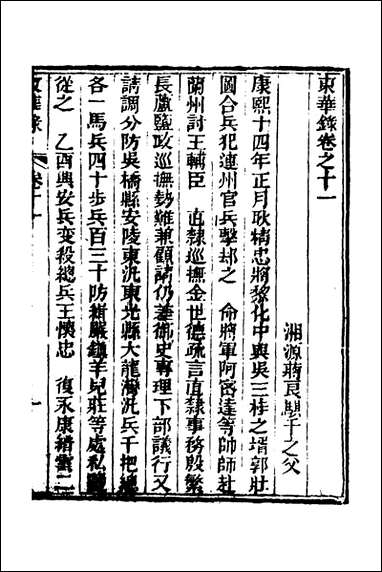 東華錄卷之十一
湘源蔣良騏千之父
康熙十四年正月耿精忠將黎化中與吳三桂之壻郭壯
圖合兵犯連州官兵擊却之　命將軍阿密達等帥師赴
蘭州討王輔臣　直隸巡撫金世德疏言直隸事務殷繁
長蘆鹽政巡撫勢難兼顧請仍差御史專理下部議行又
請調分防吳橋縣安陵東汛東光縣大龍灣汛兵千把總
各一馬兵四十步兵百三十防緝嚴鎮羊兒莊等處私鹽
從之　乙酉興安兵変殺總兵王懷忠　復永康縉雲二
華錄
卷十一
一